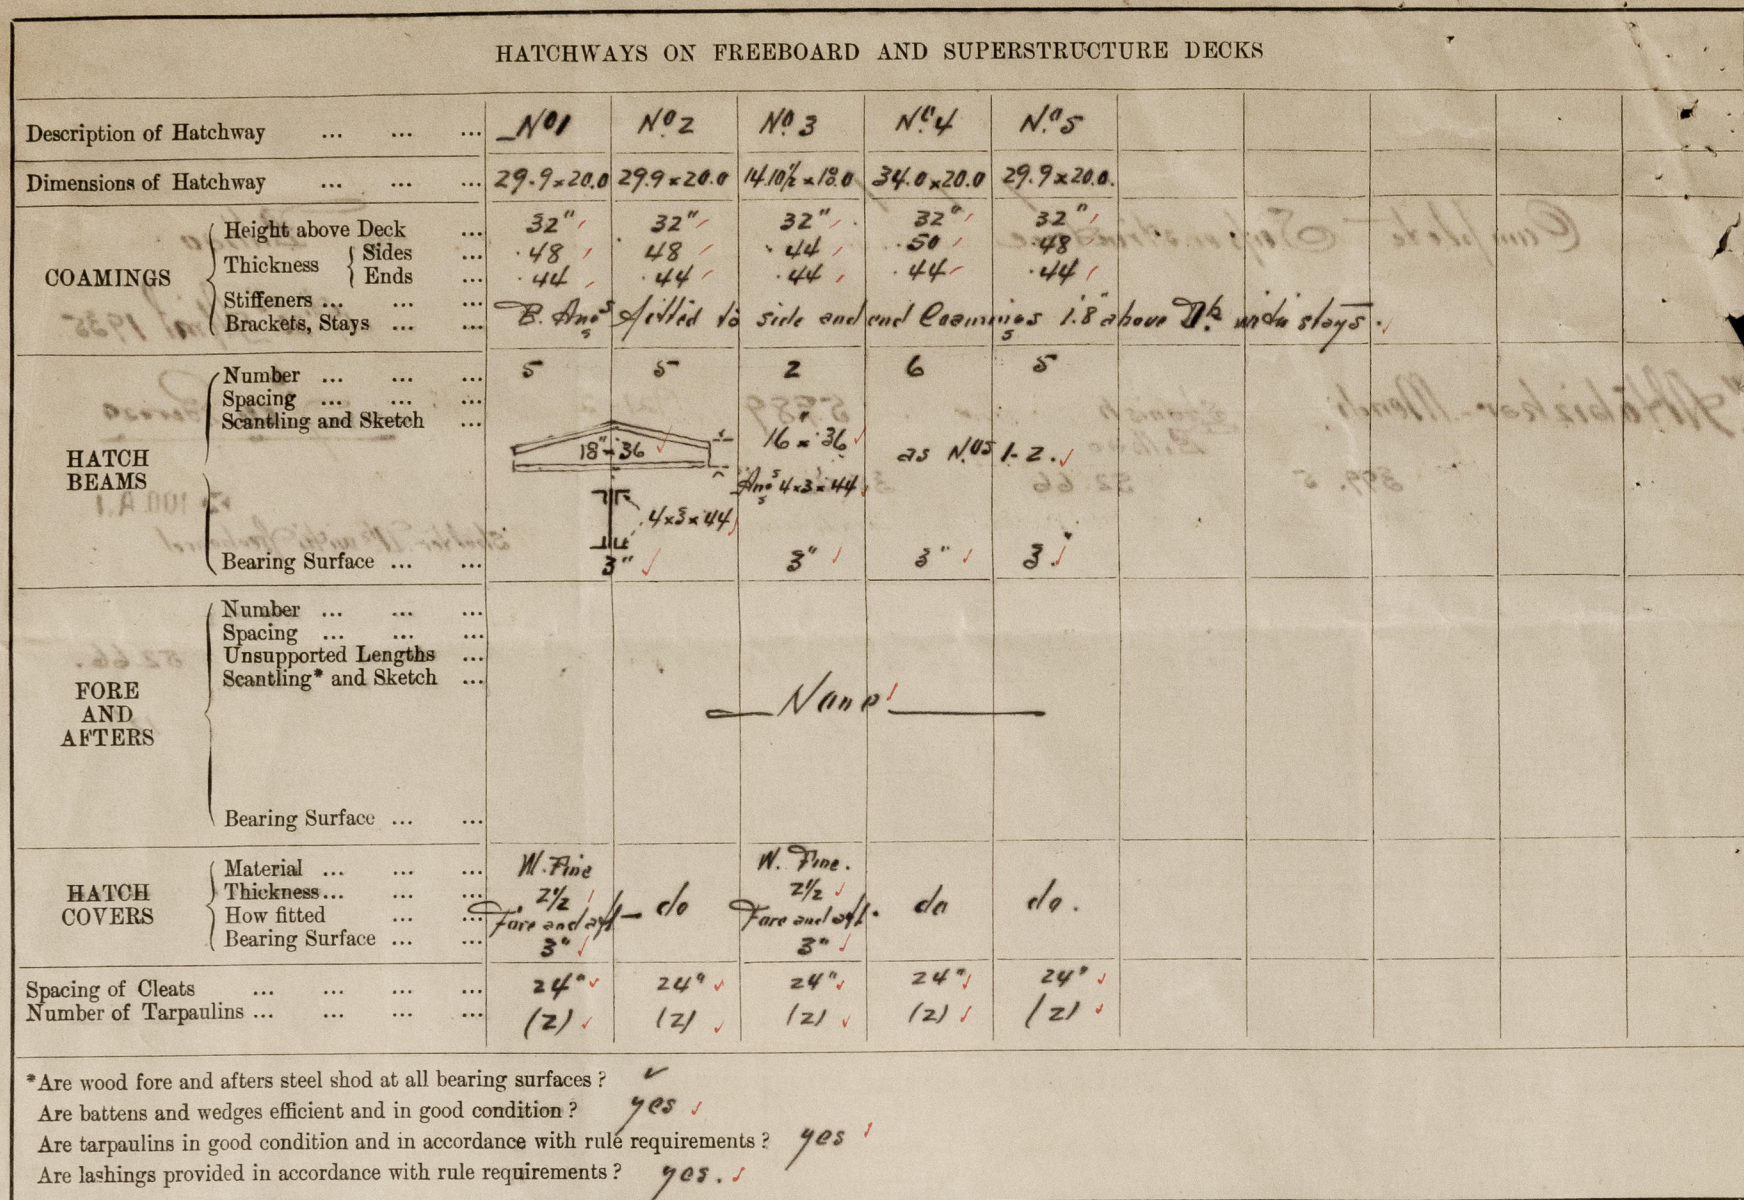 HATCHWAYS ON FREEBOARD AND SUPERSTRUCTURE DECKS
Description of Hatchway ... ... ... No 1 No. 2 No. 3 No. 4 No. 5
Dimensions of Hatchway ... ... ... 29.9 x 20.0 29.9 x 20.0 14.10½ x 18.0 34.0 x 20.0 29.9 x 20.0.
COAMINGS
Height above Deck ... 32" 32" 32" 32" 32"
Thickness
Sides ... .48 .48 .44 .50 .48
Ends ... .44 .44 .44 .44 .44
Stiffeners ... ... ...
Brackets, Stays ... ... B. Angs fitted to side and end Coamings 1.8" above Dk. with stays.
HATCH BEAMS
Number ... ... ... 5 5 2 6 5
Spacing ... ... ...
Scantling and Sketch ... 18" x .36 16" x .36 as Nos 1-2.
Angs 4x3x.44
4x3x.44
Bearing Surface ... ... 3" 3" 3" 3"
FORE AND AFTERS
Number ... ... ...
Spacing ... ... ...
Unsupported Lengths ...
Scantling* and Sketch ...
None
Bearing Surface ... ...
HATCH COVERS
Material ... ... ... W. Pine W. Pine.
Thickness... ... ... 2½ 2½
How fitted ... ... Fore and aft do Fore and aft. do do.
Bearing Surface ... ... 3" 3"
Spacing of Cleats ... ... ... ... 24" 24" 24" 24" 24"
Number of Tarpaulins ... ... ... ... (2) (2) (2) (2) (2)
*Are wood fore and afters steel shod at all bearing surfaces ? ✓
Are battens and wedges efficient and in good condition ? yes
Are tarpaulins in good condition and in accordance with rule requirements ? yes
Are lashings provided in accordance with rule requirements ? yes.